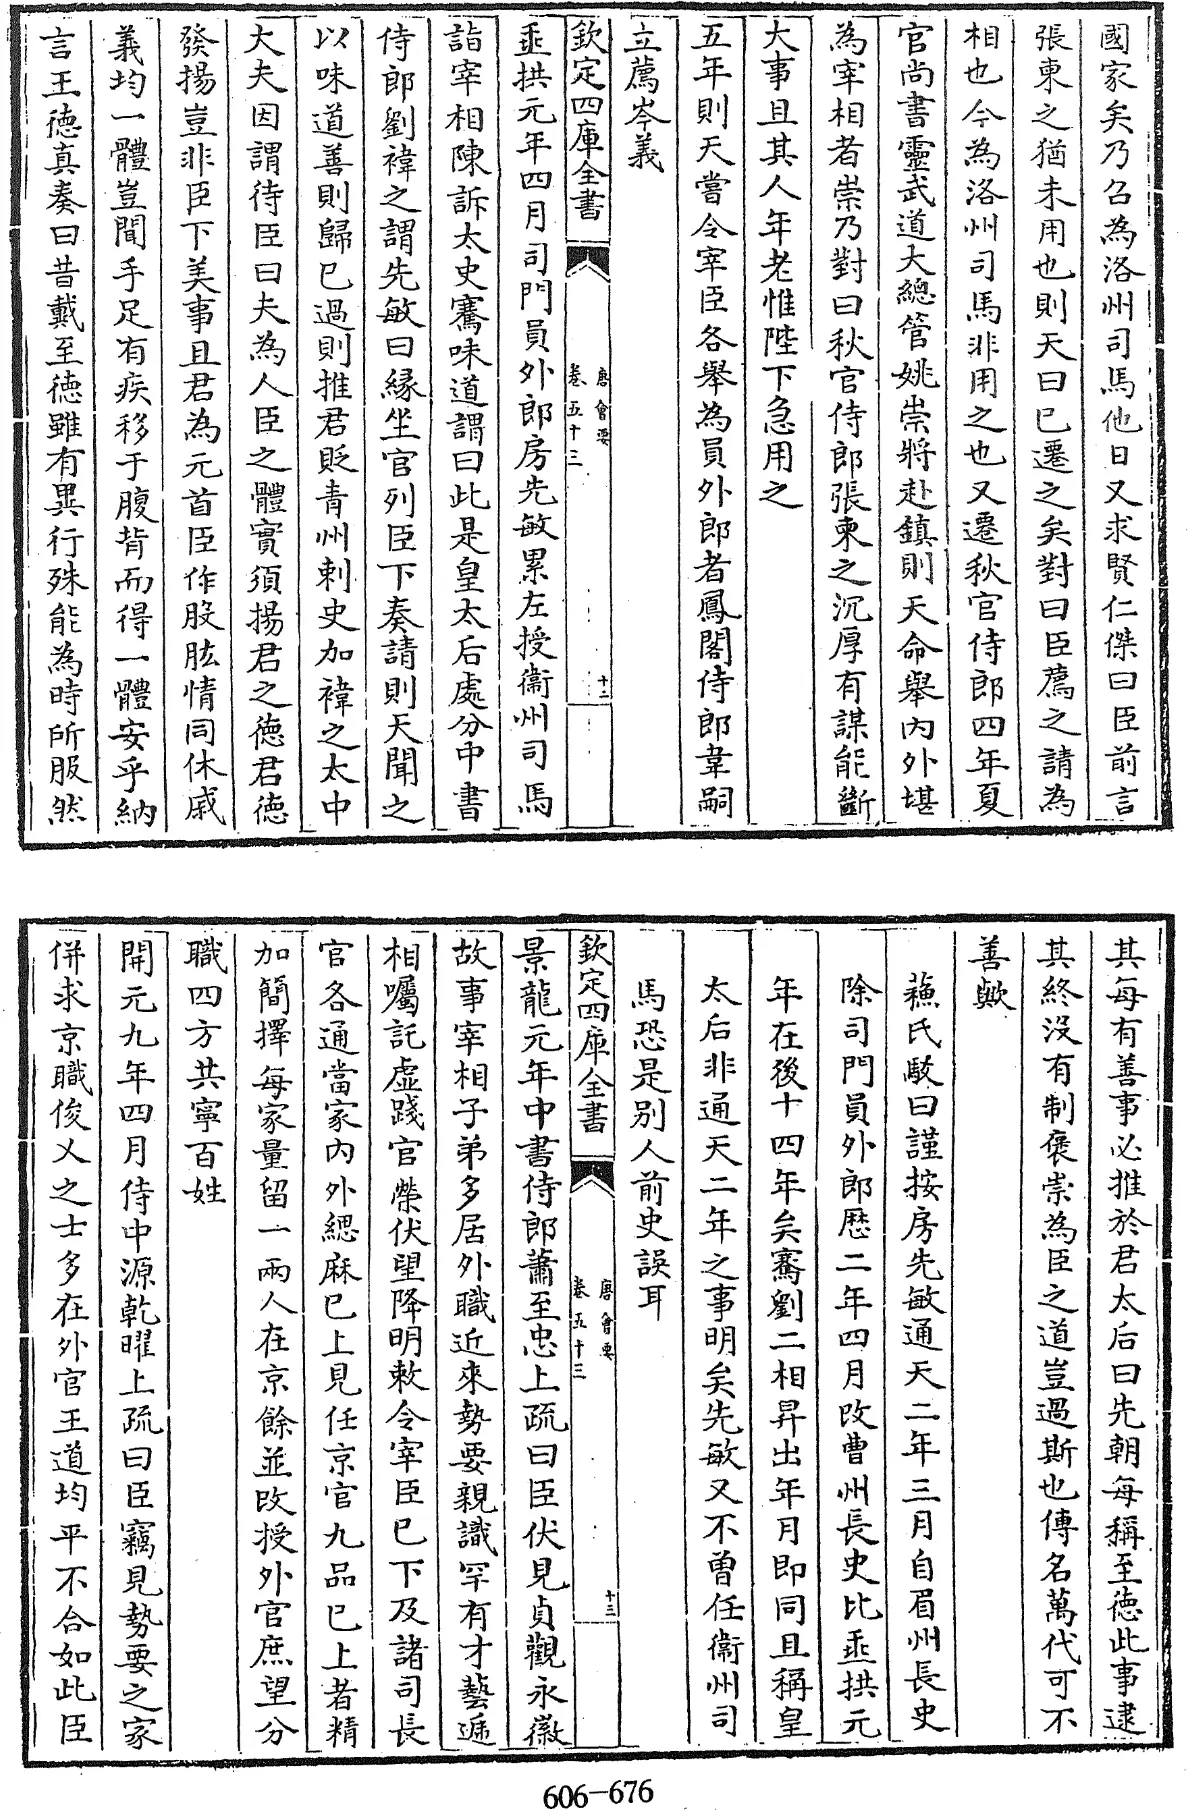 國家矣乃召為洛州司馬他日又求賢仁傑曰臣前言
張柬之猶未用也則天曰已遷之矣對曰臣薦之請為
相也今為洛州司馬非用之也又遷秋官侍郎四年夏
官尚書靈武道大總管姚崇將赴鎮則天命舉内外堪
為宰相者崇乃對曰秋官侍郎張柬之沉厚有謀能斷
大事且其人年老惟陛下急用之
五年則天嘗令宰臣各舉為員外郎者鳳閣侍郎韋嗣
立薦岑義
欽定四庫全書
唐會要
卷五十三
十二
垂拱元年四月司門員外郎房先敏累左授衞州司馬
詣宰相陳訴太史騫味道謂曰此是皇太后處分中書
侍郎劉褘之謂先敏曰縁坐官列臣下奏請則天聞之
以味道善則歸已過則推君貶青州刺史加褘之太中
大夫因謂待臣曰夫為人臣之體實須揚君之德君德
發揚豈非臣下美事且君為元首臣作股肱情同休戚
義均一體豈聞手足有疾移于腹背而得一體安乎納
言王德真奏曰昔戴至德雖有異行殊能為時所服然
其每有善事必推於君太后曰先朝每稱至德此事逮
其終沒有制褒崇為臣之道豈過斯也傳名萬代可不
善歟
蘓氏駮曰謹按房先敏通天二年三月自眉州長史
除司門員外郎歴二年四月改曹州長史比垂拱元
年在後十四年矣騫劉二相昇出年月即同且稱皇
太后非通天二年之事明矣先敏又不曾任衞州司
馬恐是別人前史誤耳
欽定四庫全書
唐會要
卷五十三
十三
景龍元年中書侍郎蕭至忠上疏曰臣伏見貞觀永徽
故事宰相子弟多居外職近來勢要親識罕有才藝遞
相囑託虛踐官榮伏望降明敕令宰臣已下及諸司長
官各通當家内外緦麻已上見任京官九品已上者精
加簡擇每家量留一兩人在京餘並改授外官庶望分
職四方共寧百姓
開元九年四月侍中源乾曜上疏曰臣竊見勢要之家
併求京職俊乂之士多在外官王道均平不合如此臣
606-676